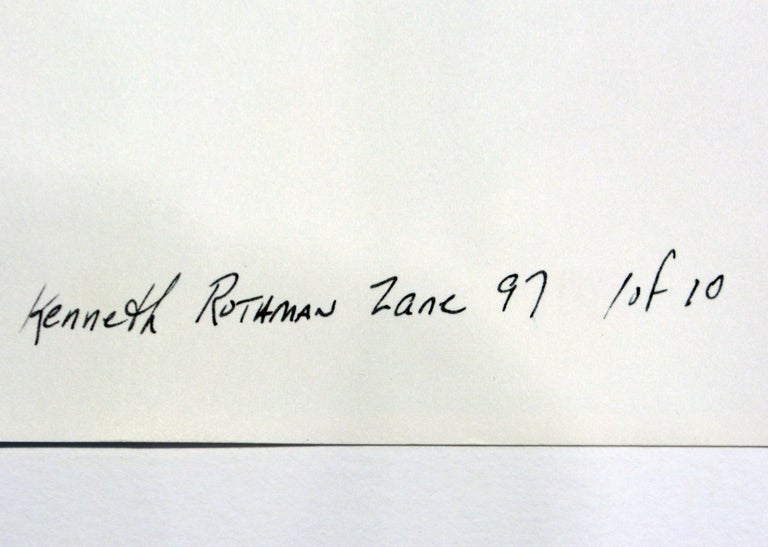 Kenneth ROTHMAN Zane 97 1 of 10